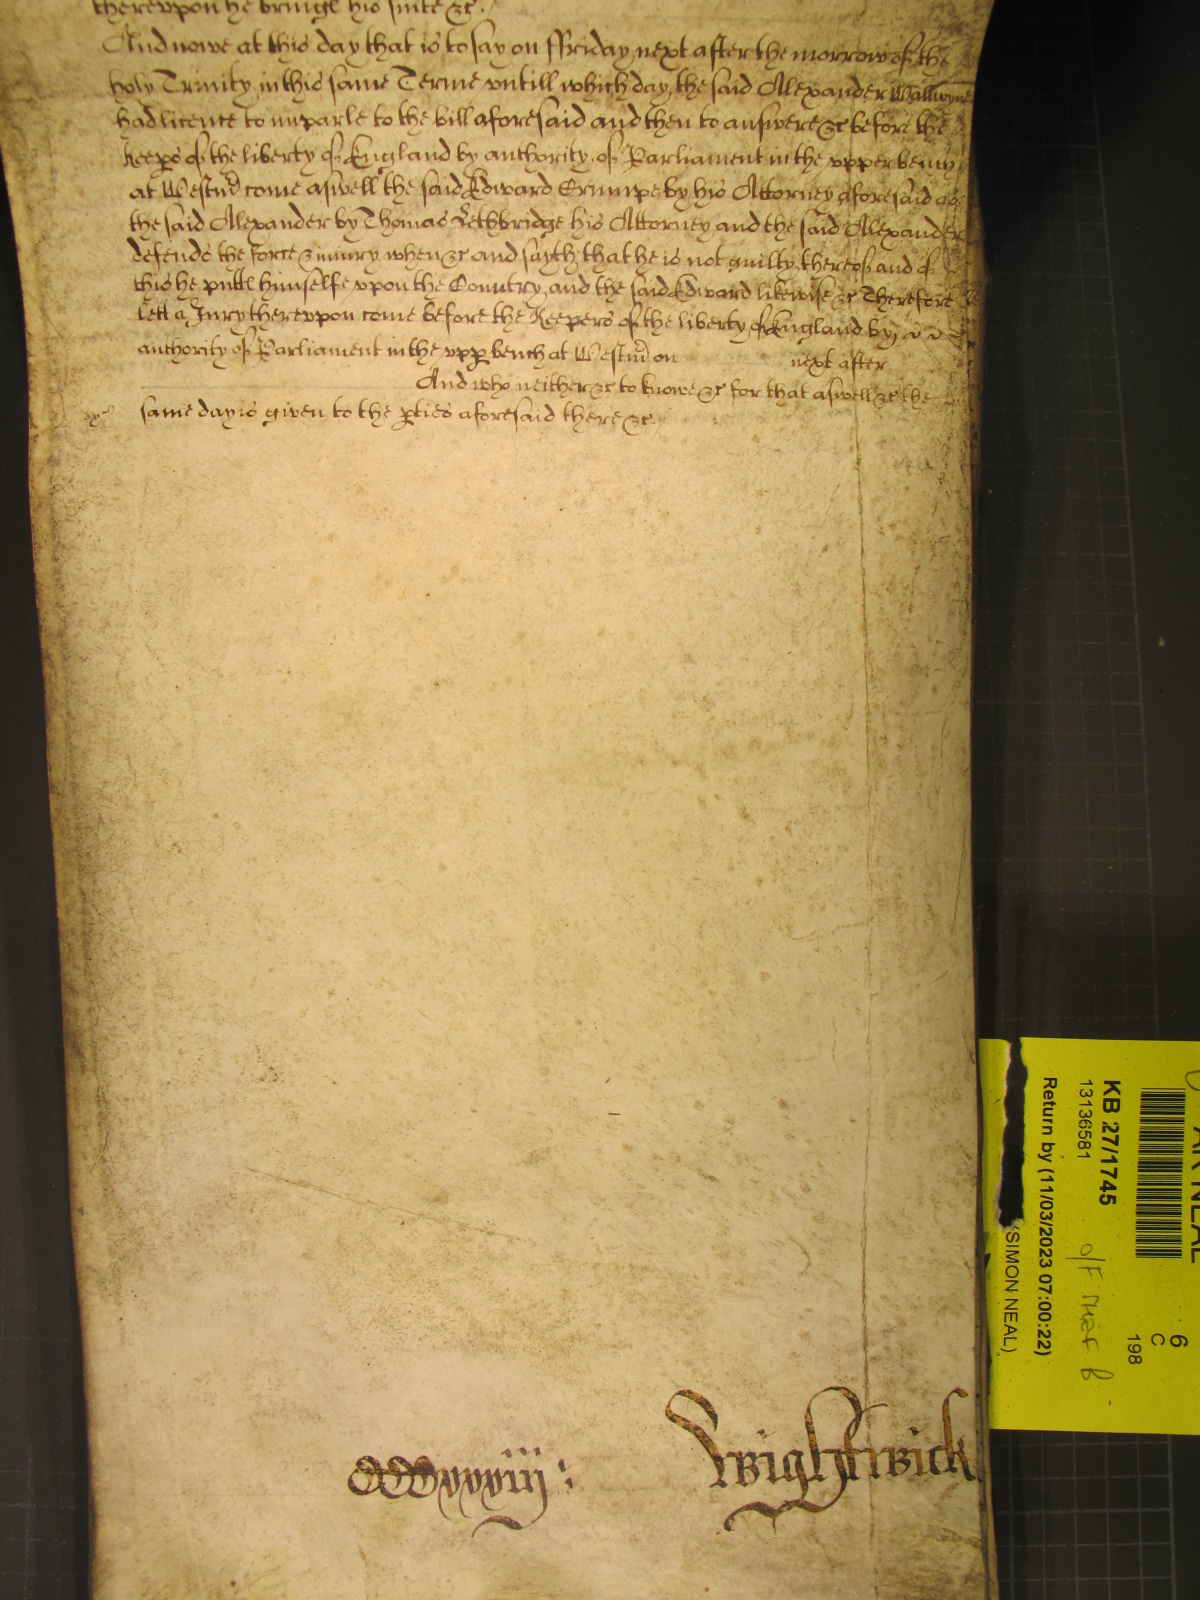 therevpon he bringℓ his suite &c.
And nowe at this day that is to say on ffriday next after the morrow of the
holy Trinity in this same Terme vntill which day the said Alexander Wallwyne
had licence to imparle to the bill aforesaid and then to answere &c before the
Keeps of the liberty of England by authority of Parliament in the vpper bench
at Westm̄ come aswell the said Edward Crumpe by his Attorney aforesaid as
the said Alexander by Thomas Lethbridge his Attorney and the said Alexander
defends the force & iniury when &c and sayth that he is not guilty thereof and of
this he puttℓ himselfe vpon the Countrey and the said Edward likewise &c Therefore
lett a Jury therevpon come before the Keepers of the liberty of England by
authority of Parliament in the vpp bench at Westm̄ on next after
And who neither &c to knowe &c for that aswell &c the
same day is given to the pties aforesaid there &c
CCCxxxiij :
Wightwick
KB 27/1745
13136581
Return by (11/03/2023 07:00:22)
(SIMON NEAL)
6
C
198